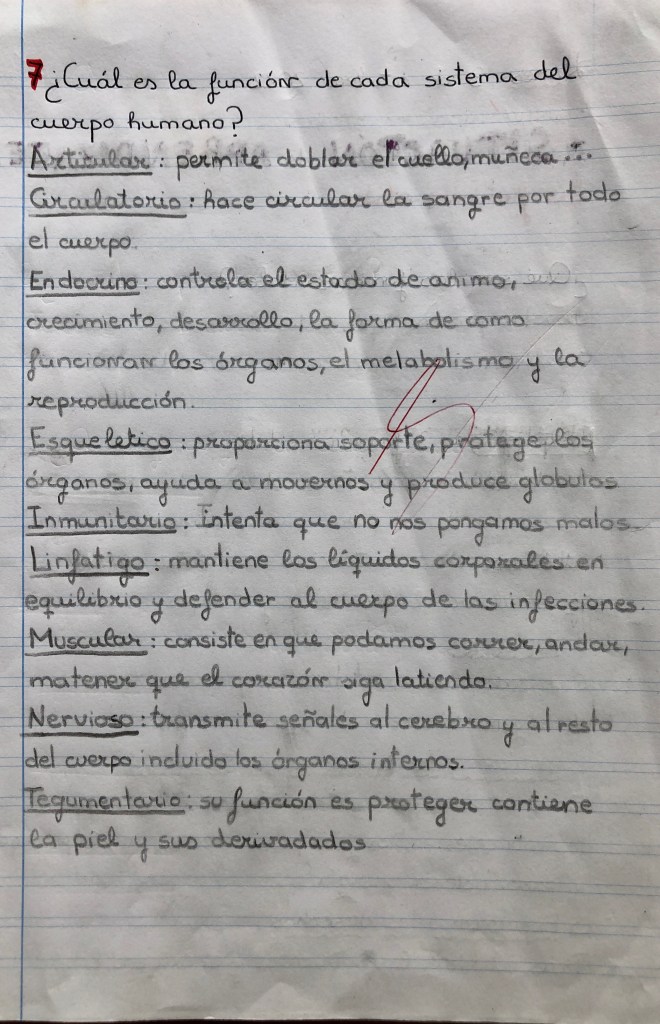 7 ¿Cuál es la función de cada sistema del
cuerpo humano?
Articular: permite doblar el cuello, muñeca...
Circulatorio: hace circular la sangre por todo
el cuerpo.
Endocrino: controla el estado de animo,
crecimiento, desarrollo, la forma de como
funcionan los órganos, el metabolismo y la
reproducción.
Esqueletico: proporciona soporte, protege los
órganos, ayuda a movernos y produce globulos
Inmunitario: Intenta que no nos pongamos malos.
Linfatigo: mantiene los líquidos corporales en
equilibrio y defender al cuerpo de las infecciones.
Muscular: consiste en que podamos correr, andar,
matener que el corazón siga latiendo.
Nervioso: transmite señales al cerebro y al resto
del cuerpo incluido los órganos internos.
Tegumentario: su función es proteger contiene
la piel y sus derivadados